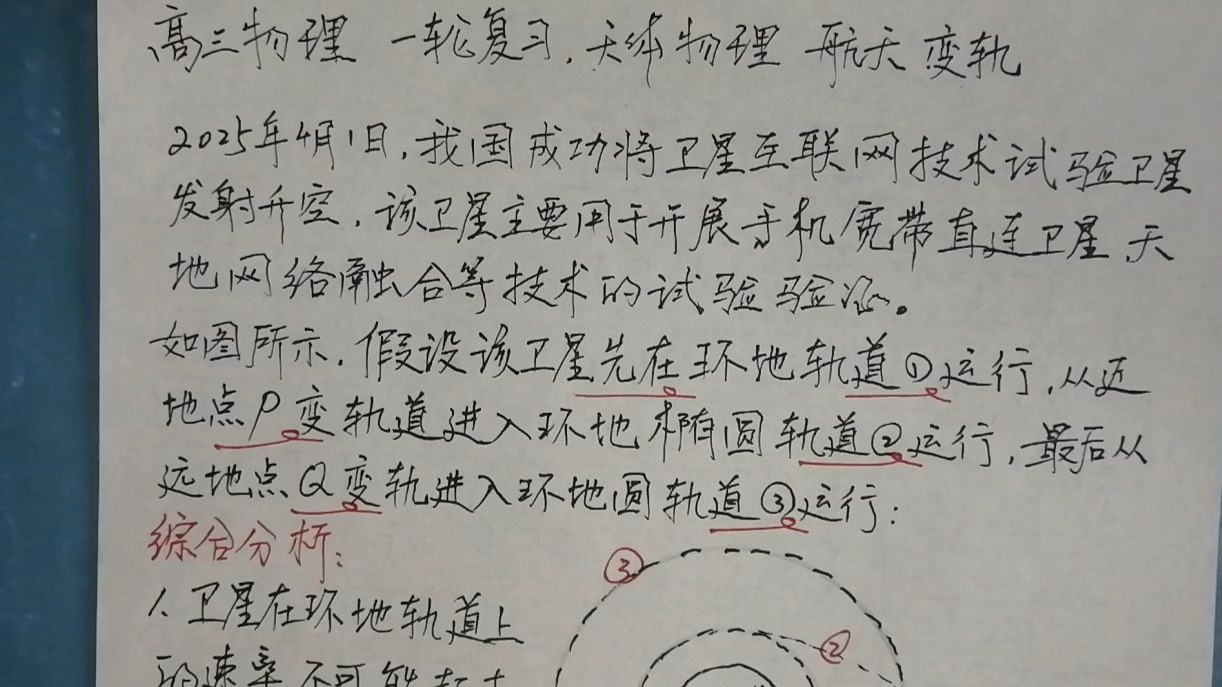 高三物理 一轮复习.天体物理 航天变轨
2025年4月1日,我国成功将卫星互联网技术试验卫星
发射升空,该卫星主要用于开展手机宽带直连卫星、天
地网络融合等技术的试验验证。
如图所示.假设该卫星先在环地轨道①运行,从近
地点P变轨道进入环地椭圆轨道②运行,最后从
远地点Q变轨进入环地圆轨道③运行:
综合分析:
③
1.卫星在环地轨道上
②
的速率不可能